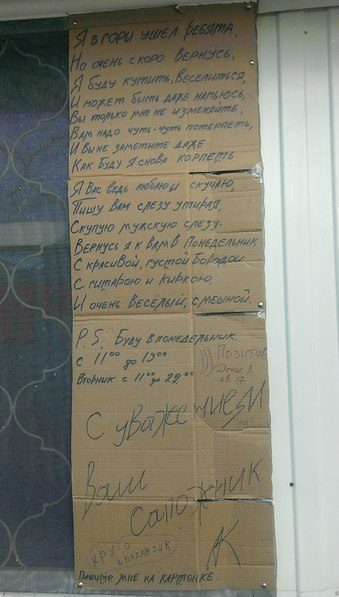 Я в горы ушел ребята,
Но очень скоро вернусь,
Я буду кутить, веселиться,
И может быть даже напьюсь,
Вы только мне не изменяйте,
Вам надо чуть-чуть потерпеть,
И вы не заметите даже
Как буду я снова корпеть
Я вас ведь люблю и скучаю,
Пишу вам слезу утирая,
Скупую мужскую слезу.
Вернусь я к вам в понедельник
С красивой, густой бородой
С гитарою и киркою
И очень веселый, смешной.
P.S: Буду в понедельник
с 11⁰⁰ до 19⁰⁰
Вторник с 11⁰⁰ до 22⁰⁰
))) Позитив
Денис Л
кв 17
С уважением
Ваш
сапожник
К
Круто
красавчик
Пишите мне на картонке.